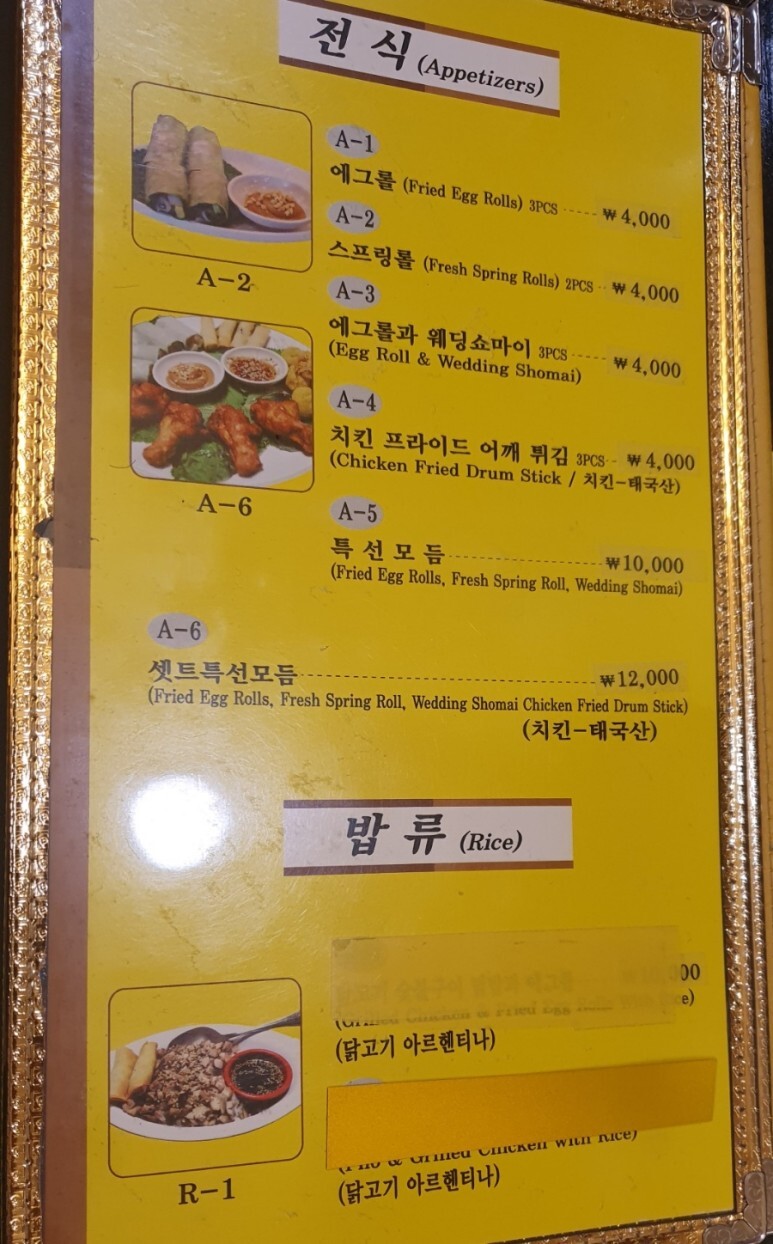 전 식 (Appetizers)
A-1
에그롤 (Fried Egg Rolls) 3PCS ----- ₩ 4,000
A-2
스프링롤 (Fresh Spring Rolls) 2PCS -- ₩ 4,000
A-3
에그롤과 웨딩쇼마이 3PCS ------ ₩ 4,000
(Egg Roll & Wedding Shomai)
A-4
치킨 프라이드 어깨 튀김 3PCS -- ₩ 4,000
(Chicken Fried Drum Stick / 치킨-태국산)
A-5
특 선 모 듬 ------------------------ ₩10,000
(Fried Egg Rolls, Fresh Spring Roll, Wedding Shomai)
A-2
A-6
A-6
셋트특선모듬 ------------------------------------------------ ₩12,000
(Fried Egg Rolls, Fresh Spring Roll, Wedding Shomai Chicken Fried Drum Stick)
(치킨-태국산)
밥 류 (Rice)
(Grilled Chicken & Fried Egg Rolls With Rice)
(닭고기 아르헨티나)
& Grilled Chicken with Rice)
(닭고기 아르헨티나)
R-1